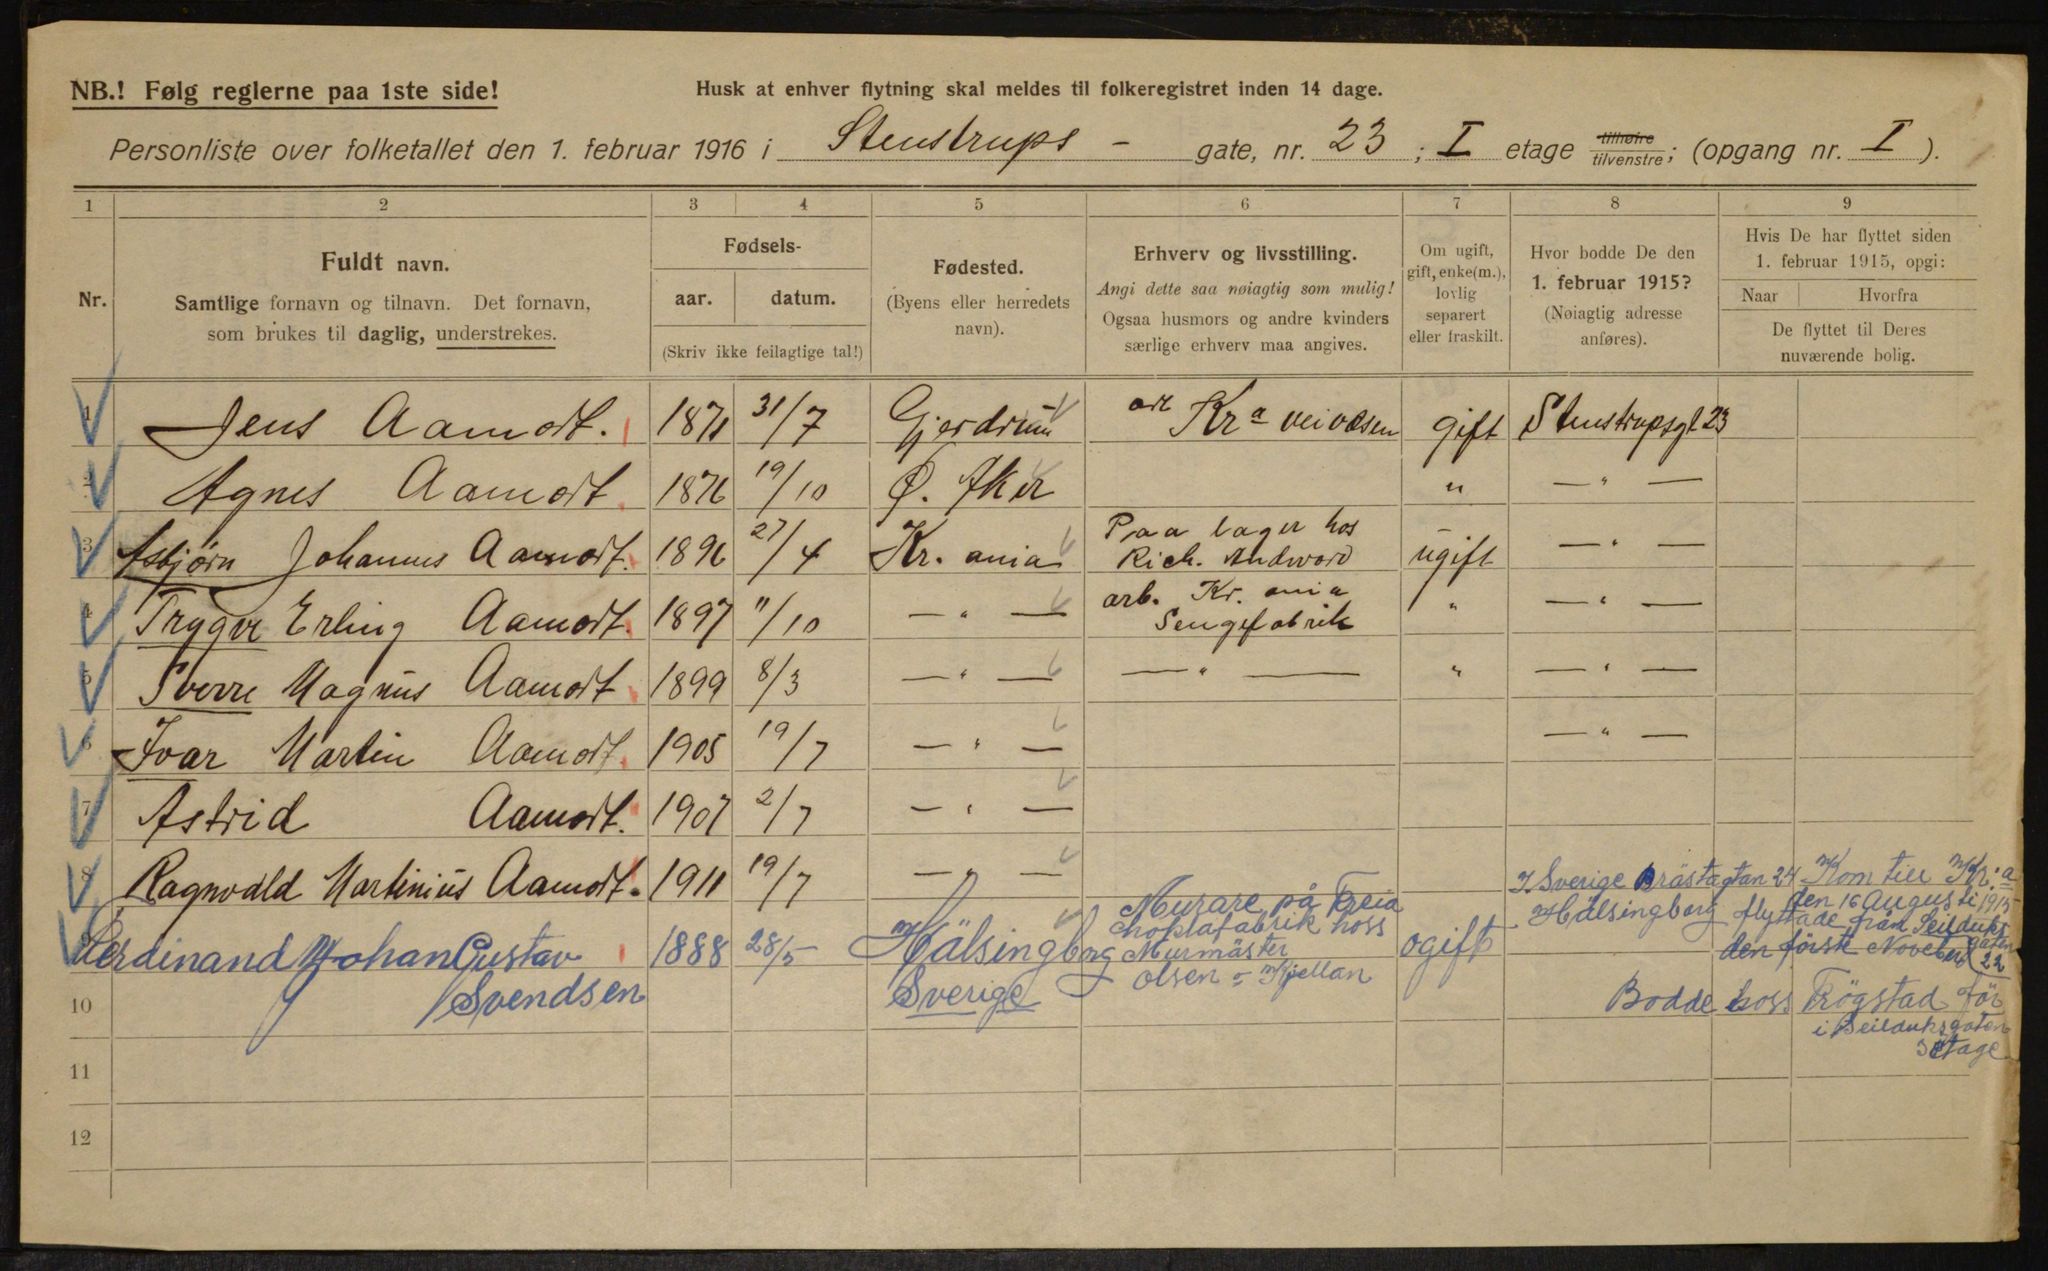 NB.! Følg reglerne paa 1ste side!
Husk at enhver flytning skal meldes til folkeregistret inden 14 dage.
Personliste over folketallet den 1. februar 1916 i Stenstrups - gate, nr. 23 ; I etage tilhøire tilvenstre; (opgang nr. I ).
1 2 3 4 5 6 7 8 9
Nr.
Fuldt navn.
Samtlige fornavn og tilnavn. Det fornavn,
som brukes til daglig, understrekes.
Fødsels-
aar. datum.
(Skriv ikke feilagtige tal!)
Fødested.
(Byens eller herredets
navn).
Erhverv og livsstilling.
Angi dette saa nøiagtig som mulig!
Ogsaa husmors og andre kvinders
særlige erhverv maa angives.
Om ugift,
gift, enke(m.),
lovlig
separert
eller fraskilt.
Hvor bodde De den
1. februar 1915?
(Nøiagtig adresse
anføres).
Hvis De har flyttet siden
1. februar 1915, opgi:
Naar Hvorfra
De flyttet til Deres
nuværende bolig.
1 Jens Aamodt. 1871 31/7 Gjerdrum Kra veivæsen gift Stenstrupsgt 23
2 Agnes Aamodt. 1876 19/10 Ø. Aker " — " —
3 Asbjørn Johannes Aamodt. 1896 27/4 Kr. ania Paa lager hos
Rich. Andvord ugift — " —
4 Trygve Erling Aamodt. 1897 11/10 — " — arb. Kr. ania
Sengefabrik " — " —
5 Sverre Magnus Aamodt 1899 8/3 — " — — " — " — " —
6 Ivar Martin Aamodt. 1905 19/7 — " — — " —
7 Astrid Aamodt. 1907 2/7 — " —
8 Ragnvald Martinius Aamodt. 1911 19/7 — " —
Ferdinand Johan Gustav
Svendsen
1888 28/5
Hälsingborg
Sverige
Murare på Freia
Choklafabrik hoss
Murmäster
Olsen o Kjellan
ogift
I Sverige Brästagtan 24
Hälsingborg
Kom till Kr:a
den 16 Augusti 1915
flyttade från Seilduks
gaten
den först November 22
Bodde hoss Trögstad för
i Seilduksgaten
3 Etage
10
11
12